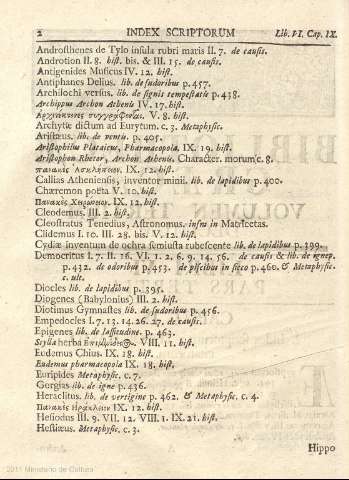 2 INDEX SCRIPTORUM Lib. VI. Cap. IX.
Androsthenes de Tylo insula rubri maris II. 7. de causis.
Androtion II. 8. hist. bis. & III. 15. de causis.
Antigenides Musicus IV. 12. hist.
Antiphanes Delius. lib. de sudoribus p. 457.
Archilochi versus. lib. de signis tempestatis p. 438.
Archipus Archon Athenis IV. 17. hist.
συγγράψαι. V. 8. hist.
Archytæ dictum ad Eurytum. c. 3. Metaphysic.
Aristæus. lib. de ventis. p. 405.
Aristophilus Platæicus, Pharmacopola. IX. 19. hist.
Aristophon Rhetor, Archon Athenis. Character. morum c. 8.
πανακὲς Ασκληπιον. IX. 12. hist.
Callias Atheniensis, inventor minii. lib. de lapidibus p. 400.
Chæremon poëta V. 10. hist.
Πανακὲς Χειρωνιον. IX. 12. hist.
Cleodemus. III. 2. hist.
Cleostratus Tenedius, Astronomus. infra in Matricetas.
Clidemus I. 10. III. 28. bis. V. 12. hist.
Cydiæ inventum de ochra semiusta rubescente lib. de lapidibus p. 399.
Democritus I. 7. II. 16. VI. 1. 2. 6. 9. 14. 56. de causis & lib. de ignep.
p. 432. de odoribus p. 453. de piscibus in sicco p. 460. & Metaphysic.
c. ult.
Diocles lib. de lapidibus p. 395.
Diogenes (Babylonius) III. 2. hist.
Diotimus Gymnastes lib. de sudoribus p. 456.
Empedocles I. 7. 13. 14. 26. 27. de causis.
Epigenes lib. de lassitudine. p. 463.
Scylla herba VIII. 11. hist.
Eudemus Chius. IX. 18. hist.
Eudemus pharmacopola IX. 18. hist.
Euripides Metaphysic. c. 7.
Gorgias lib. de igne p. 436.
Heraclitus. lib. de vertigine p. 462. & Metaphysic. c. 4.
Πανακὲς Ηρακλειον IX. 12. hist.
Hesiodus III. 9. VII. 12. VIII. 1. IX. 21. hist.
Hestiæus. Metaphysic. c. 3.
Hippo
2011 Ministerio de Cultura